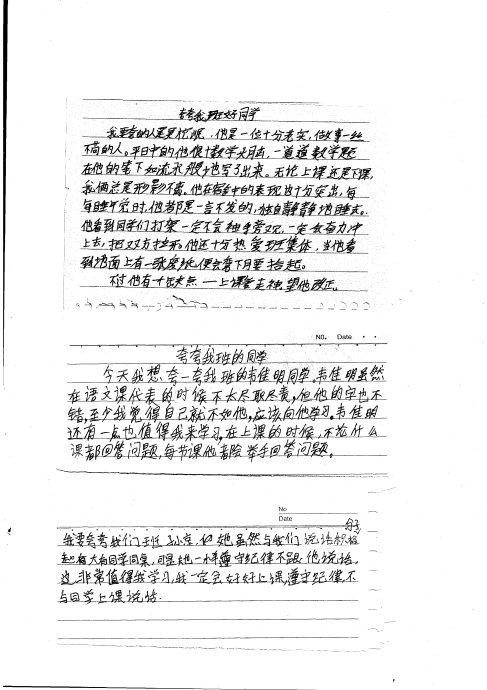 夸夸我班好同学
我要夸的人是是忆眠，他是一位十分老实，做事一丝
不苟的人。平日中的他做数学一道道数学题
在他的笔下如流水般地写了出来。无论上课还是下课，
我俩总是形影不离。他在午中的表现也十分突出，每
每睡午觉时，他都是一言不发的，独自静静地睡去。
他看到同学们打架一定不会袖手旁观，一定会奋力冲
上去，把双方拉开。他还十分热爱班集体，当他看
到地面上有一张废纸便会弯下身捡起。
不过他有一个缺点——上课爱走神，望他改正。
NO. Date
夸夸我班的同学
今天我想夸一夸我班的韦佳明同学，韦佳明虽然
在语文课代表的时候不太尽职尽责，但他的字也不
错，至少我觉得自己就不如他，应该向他学习。韦佳明
还有一点也值得我来学习，在上课的时候，不论什么
课都回答问题，每节课他都会举手回答问题。
No
Date
我要夸夸我们班 她虽然与我们说话积极
起有大有同学同桌，可是她一样遵守纪律不跟他说话。
这非常值得我学习，我一定会好好上课，遵守纪律不
与同学上课说话.